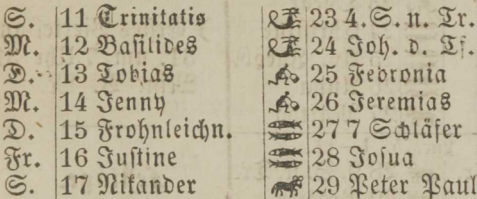 S. 11 Trinitatis 23 4. S. n. Tr.
M. 12 Basilides 24 Joh. d. Tf.
D. 13 Tobias 25 Febronia
M. 14 Jenny 26 Jeremias
D. 15 Frohnleichn. 27 7 Schläfer
Fr. 16 Justine 28 Josua
S. 17 Nikander 29 Peter Paul